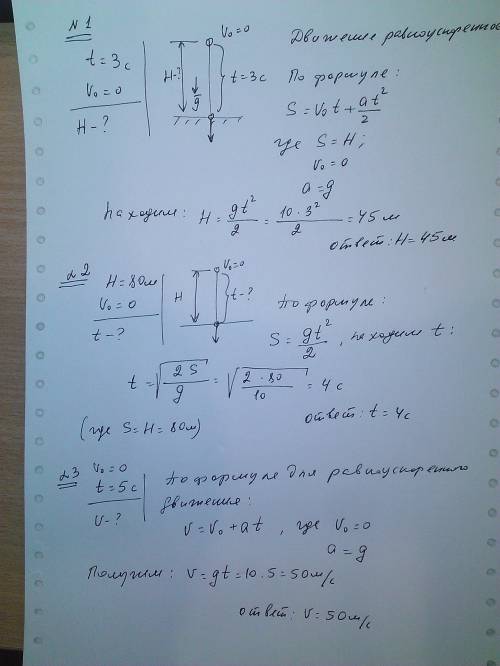 №1
t = 3с
V₀ = 0
H - ?
V₀ = 0
H-?
g
t = 3с
Движение равноускоренное
По формуле:
S = V₀t + at²/2
где S = H;
V₀ = 0
a = g
Находим: H = gt²/2 = 10·3²/2 = 45 м
ответ: H = 45м
№2
H = 80м
V₀ = 0
t - ?
V₀ = 0
H
t - ?
По формуле:
S = gt²/2, находим t:
t = √(2S/g) = √(2·80/10) = 4 с
(где S = H = 80м)
ответ: t = 4с
№3
V₀ = 0
t = 5с
V - ?
По формуле для равноускоренного
движения:
V = V₀ + at, где V₀ = 0
a = g
Получим: V = gt = 10·5 = 50м/с
ответ: V = 50м/с